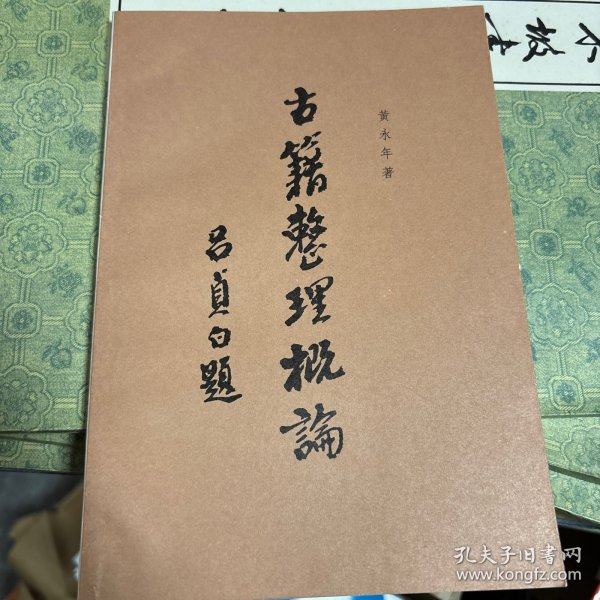 黃永年著
古籍整理概論
呂貞白題
孔夫子旧书网
www.kongfz.com